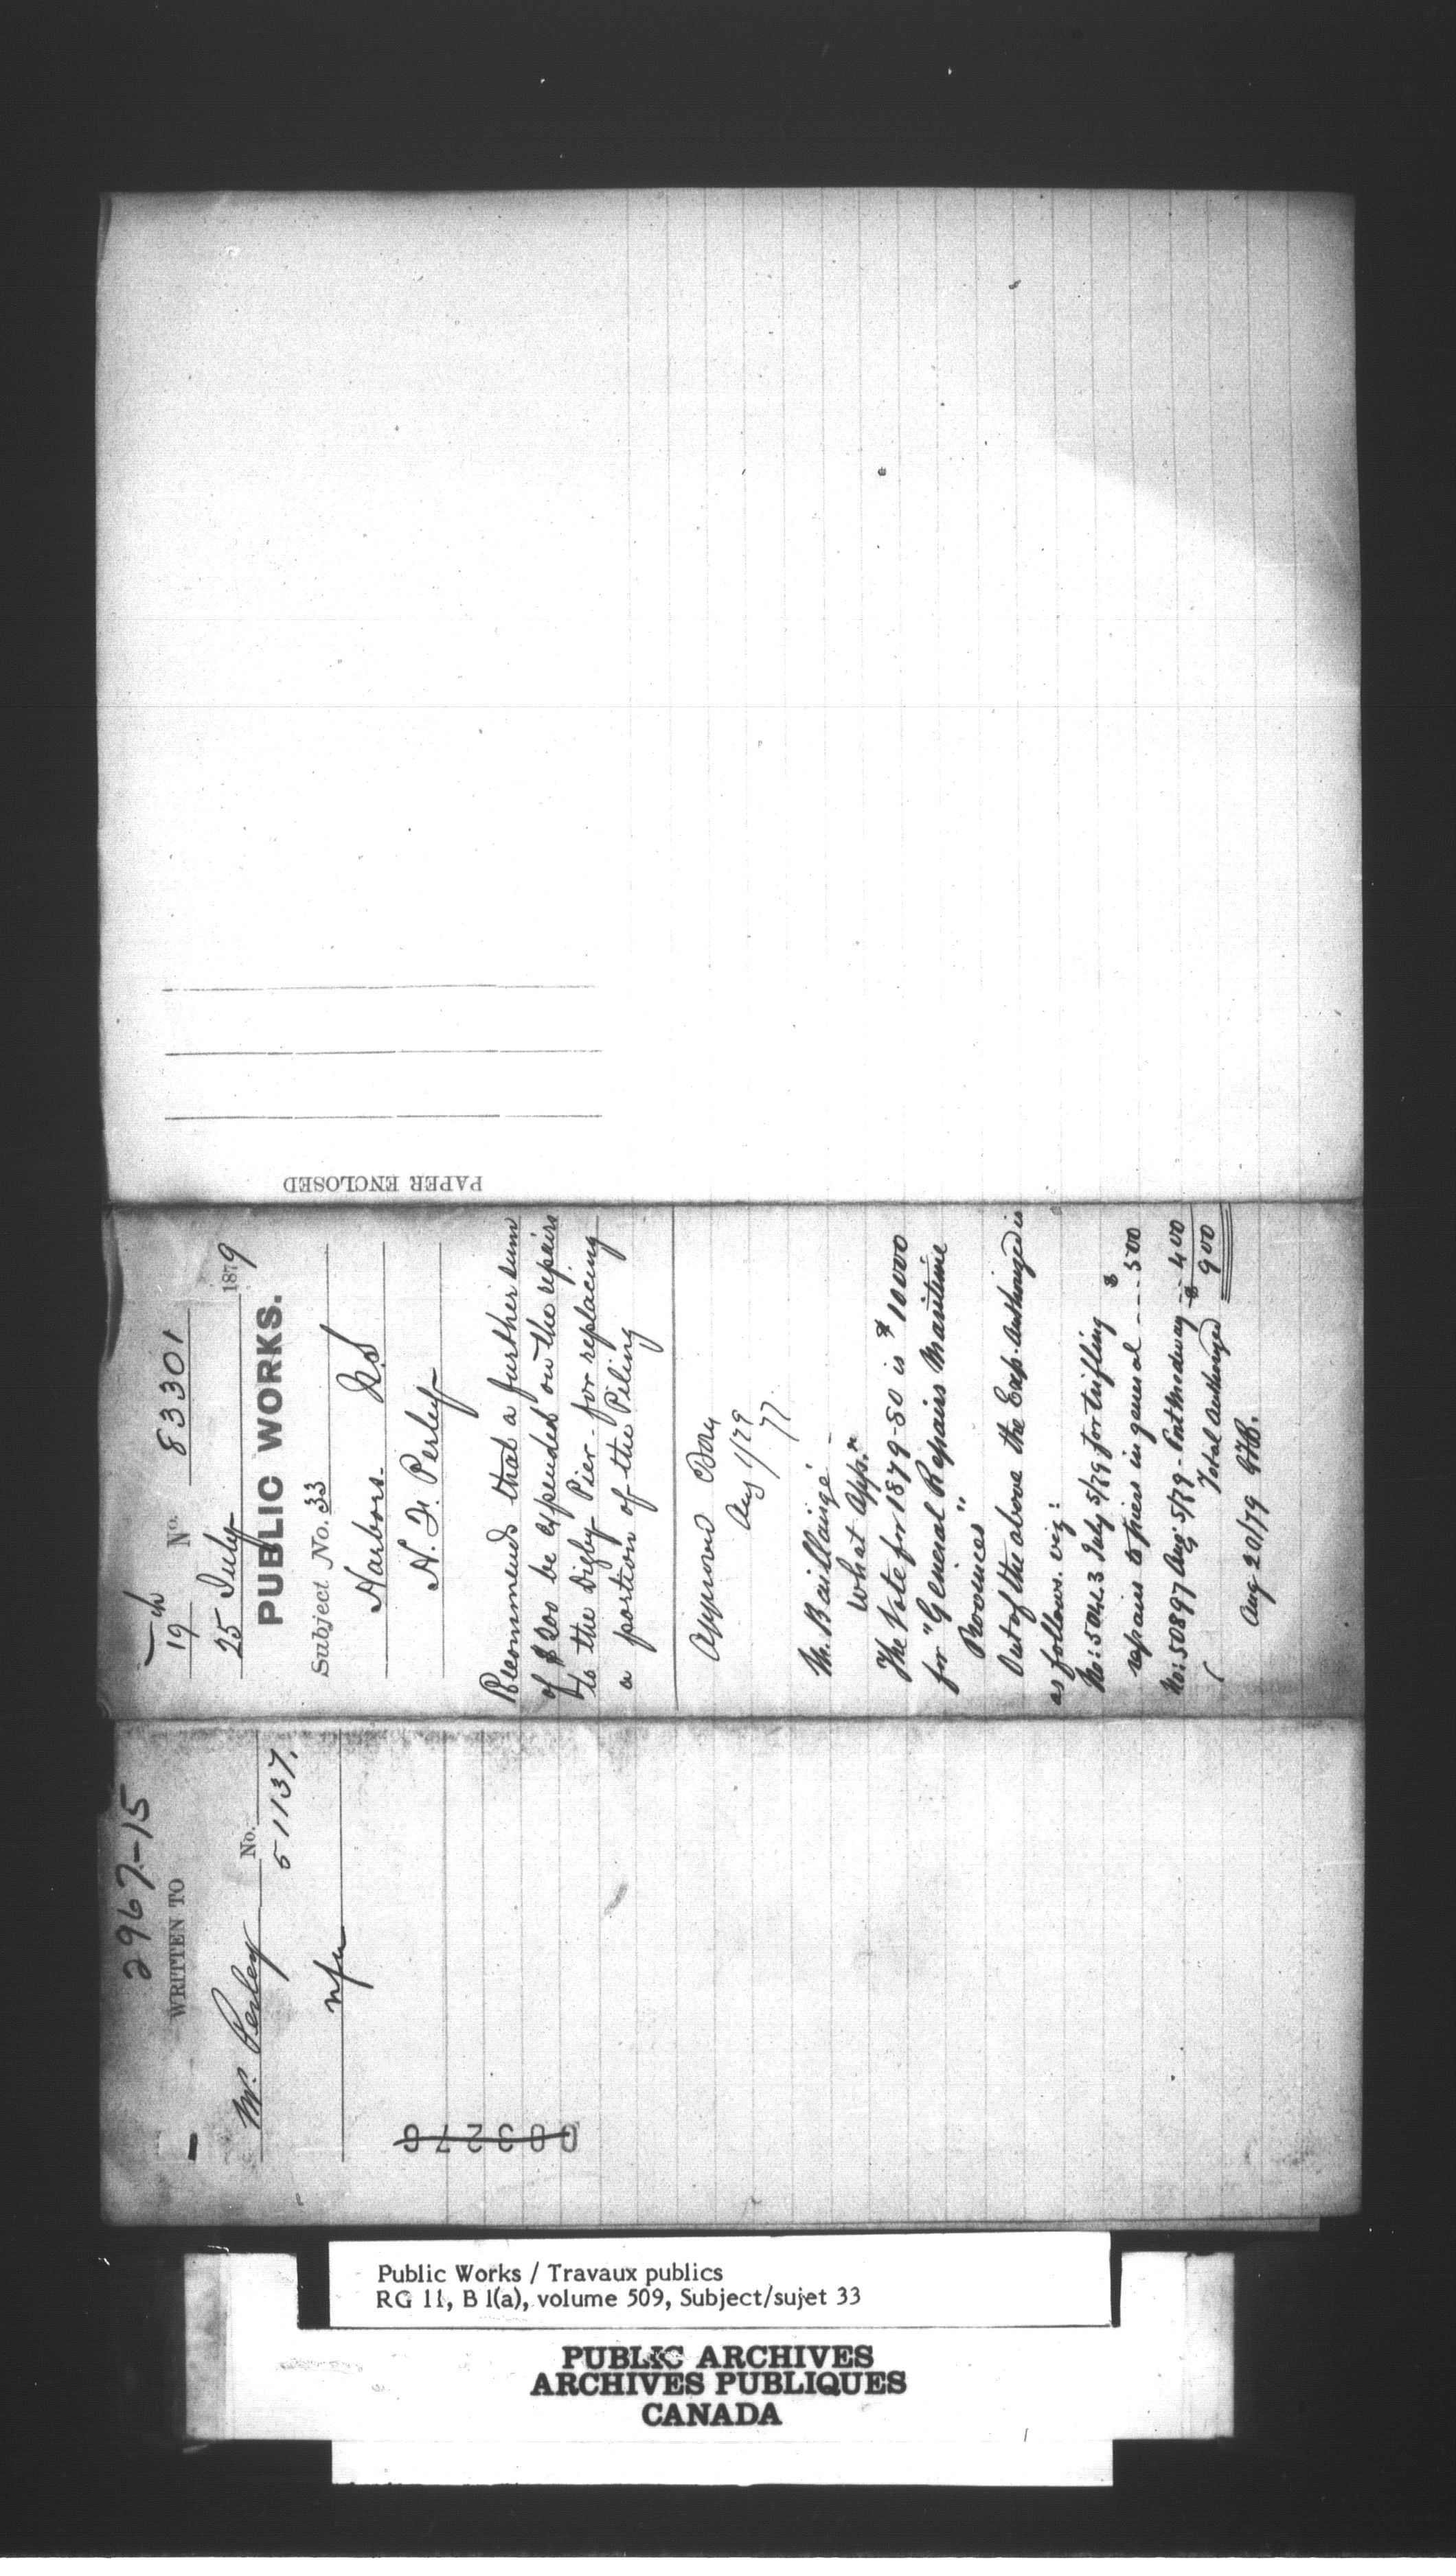 2967-15
WRITTEN TO
Mr. Perley No.
51137.
nfu
003276
19 No. 83301
25 July 1879
PUBLIC WORKS.
Subject No. 33
Harbors. N.S
H. F. Perley
Recommends that a further sum
of $200 be expended on the repairs
to the Digby Pier - for replacing
a portion of the Piling
Approved
Aug 1/79
M. Baillairgé -
What App.n
The Vote for 1879-80 is $10000
for "General Repairs Maritime
Provinces"
Out of the above the Exp. authorized is
as follows. viz:
No: 50423 July 5/79 for trifling $
repairs to piers in general --- 500
No: 50897 Aug 5/79 - Port Medway --- 400
Total authorized $ 900
Aug 20/79
PAPER ENCLOSED
Public Works / Travaux publics
RG 11, B 1(a), volume 509, Subject/sujet 33
PUBLIC ARCHIVES
ARCHIVES PUBLIQUES
CANADA